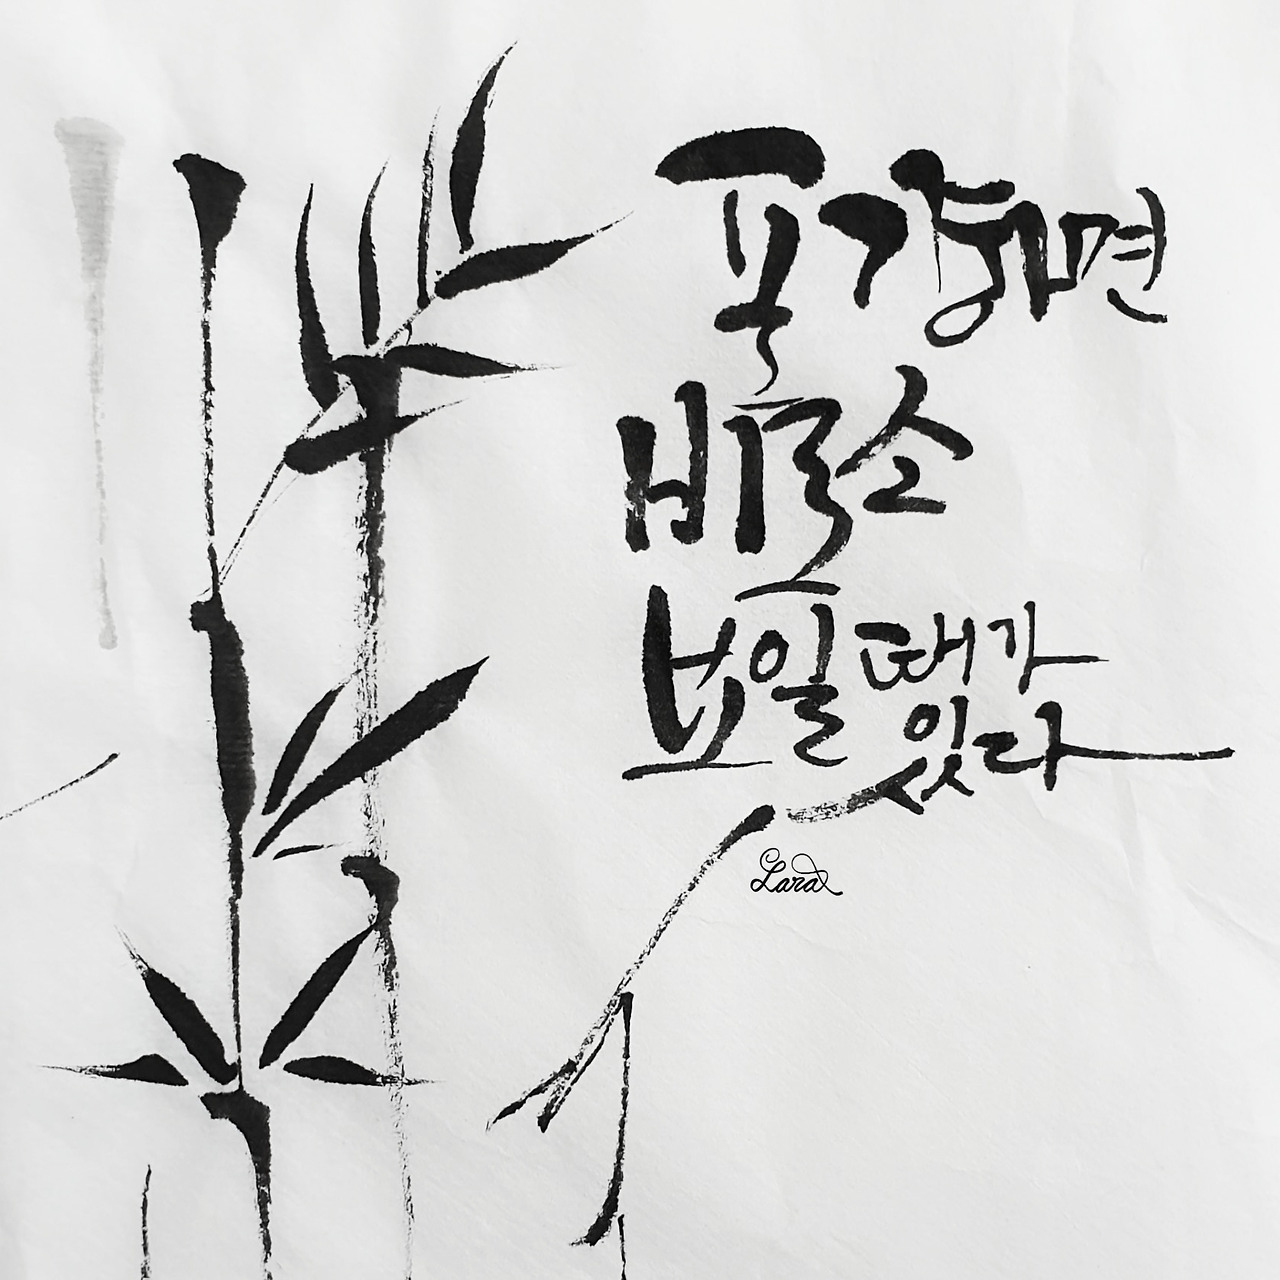 포기하면
비로소
보일 때가
있다
Lara